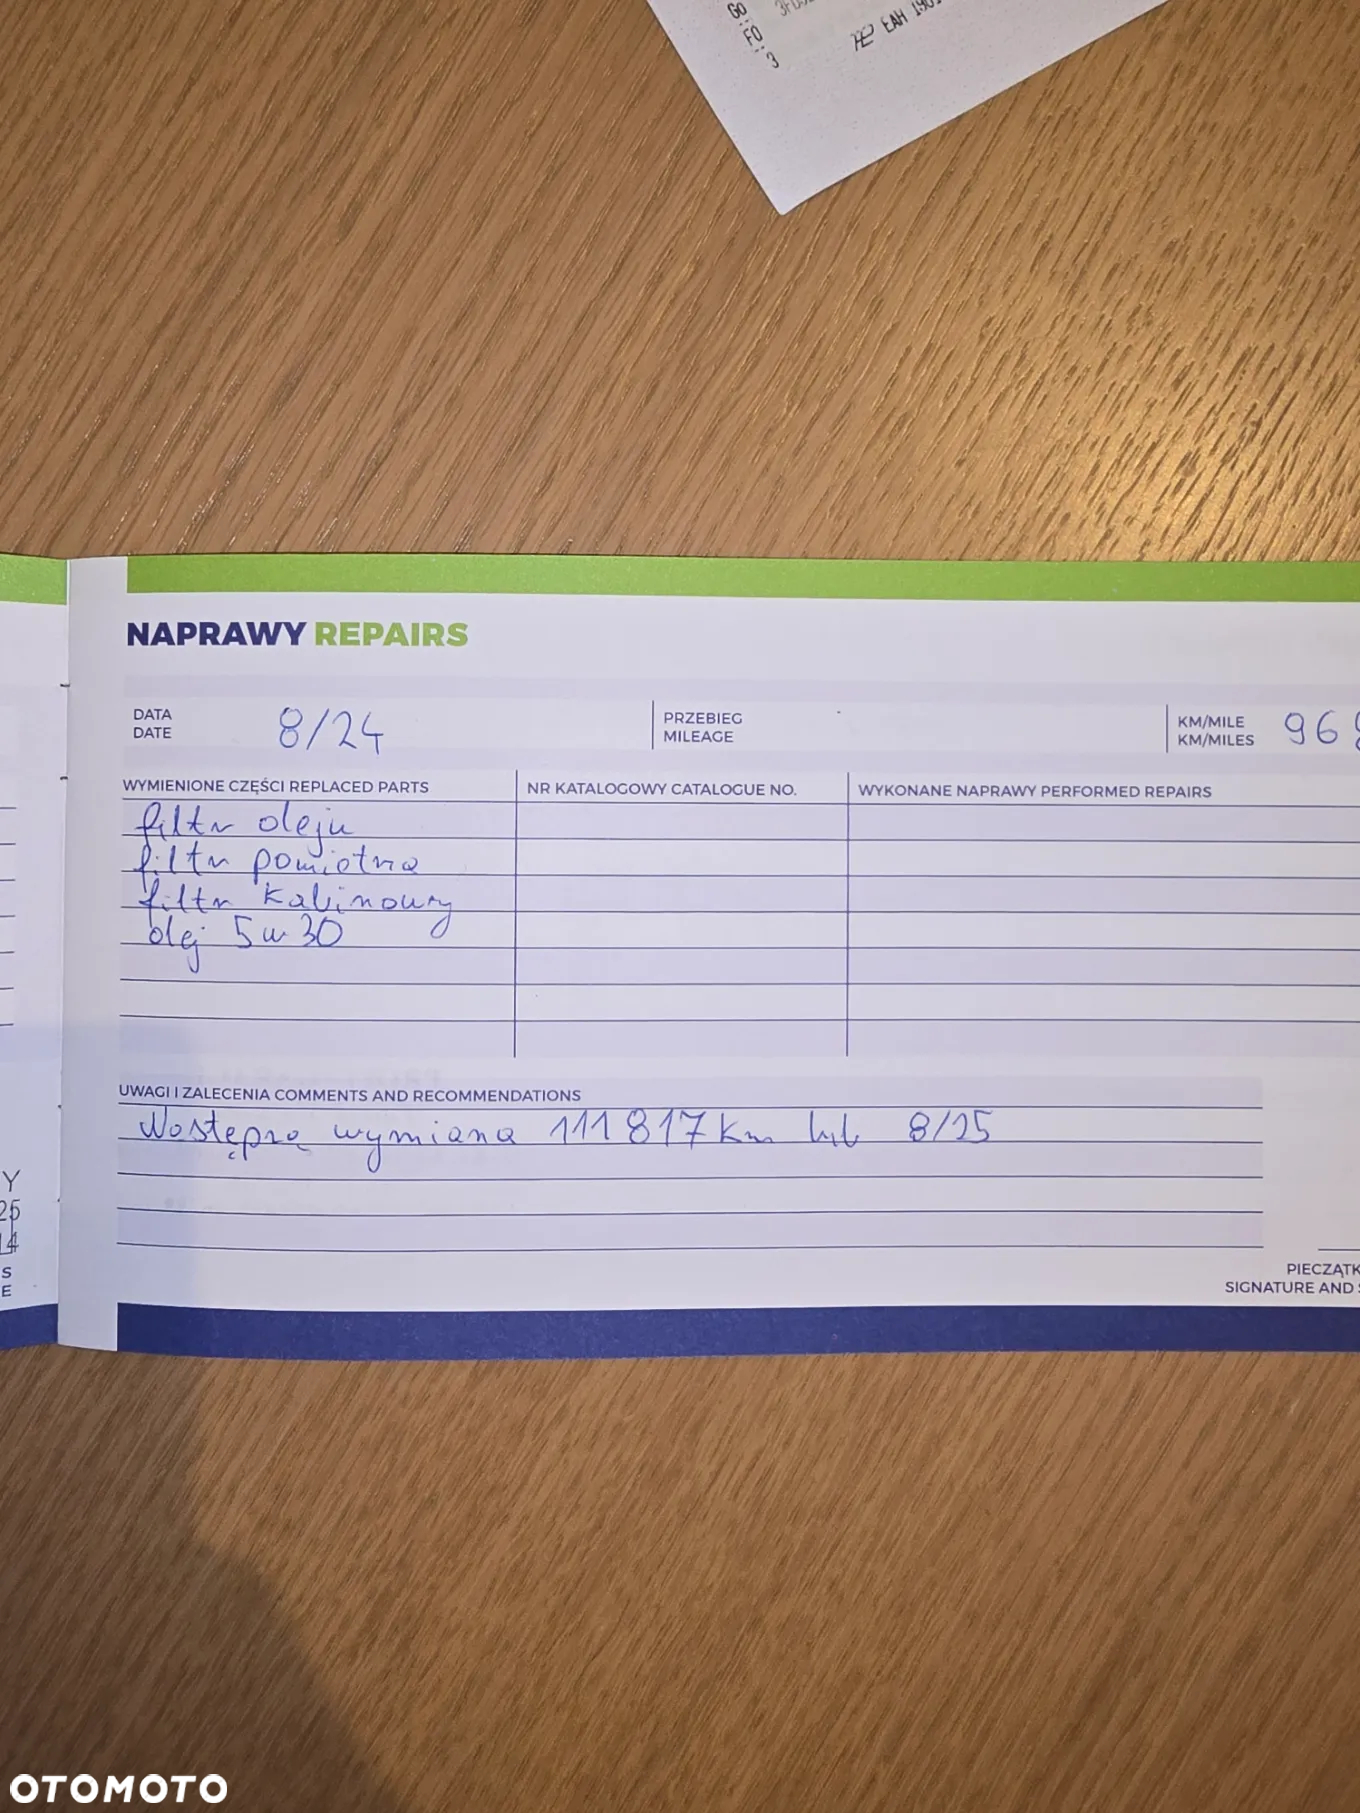 Go
FO
: 3
EAH
NAPRAWY REPAIRS
DATA
DATE
8/24
PRZEBIEG
MILEAGE
KM/MILE
KM/MILES
968
WYMIENIONE CZĘŚCI REPLACED PARTS
NR KATALOGOWY CATALOGUE NO.
WYKONANE NAPRAWY PERFORMED REPAIRS
filtr oleju
filtr powietrza
filtr kabinowy
olej 5w30
UWAGI I ZALECENIA COMMENTS AND RECOMMENDATIONS
Następna wymiana 111 817 km lub 8/25
Y
25
14
S
E
PIECZĄTK
SIGNATURE AND S
OTOMOTO